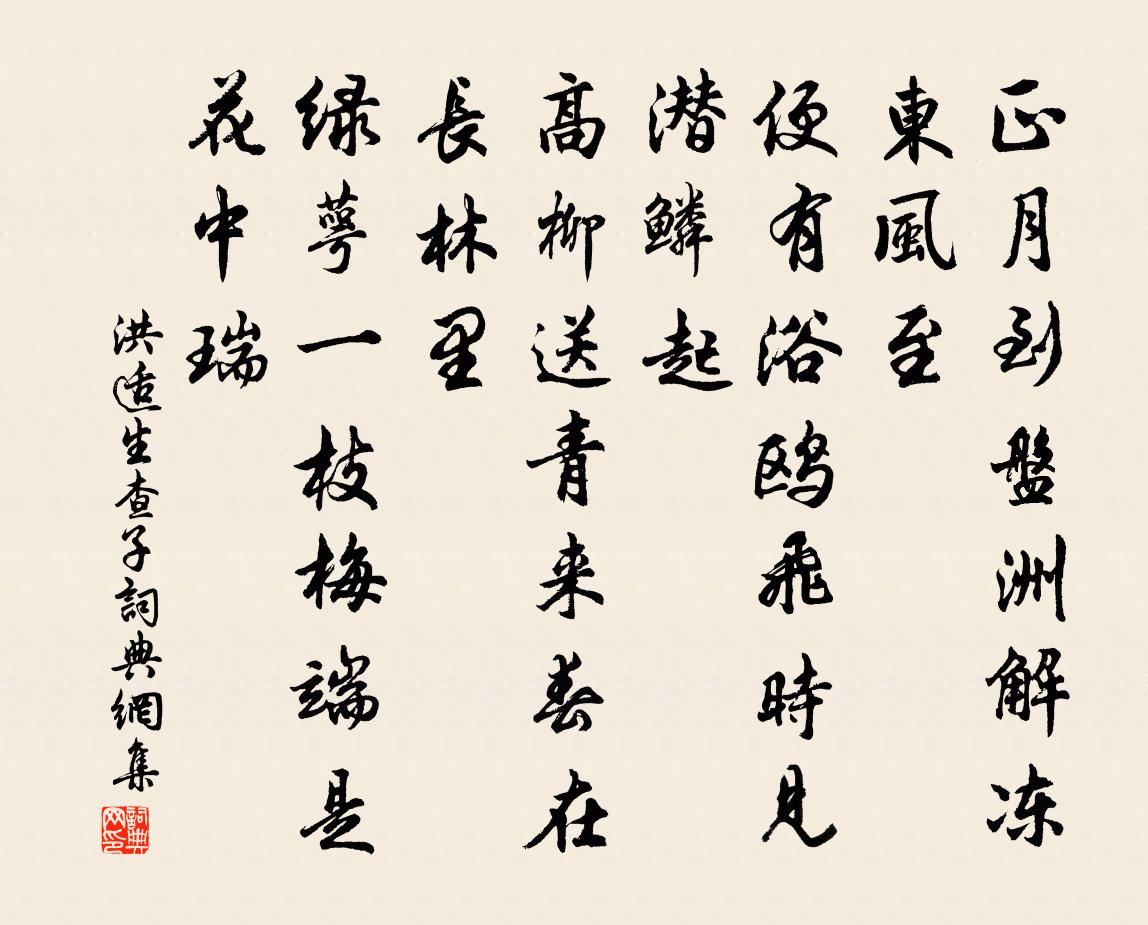 正月到盤洲解冻
東風至
便有浴鸥飛時見
潜鱗起
高柳送青来春在
長林里
緑萼一枝梅端是
花中瑞
洪适生查子詞典網集
詞典网印